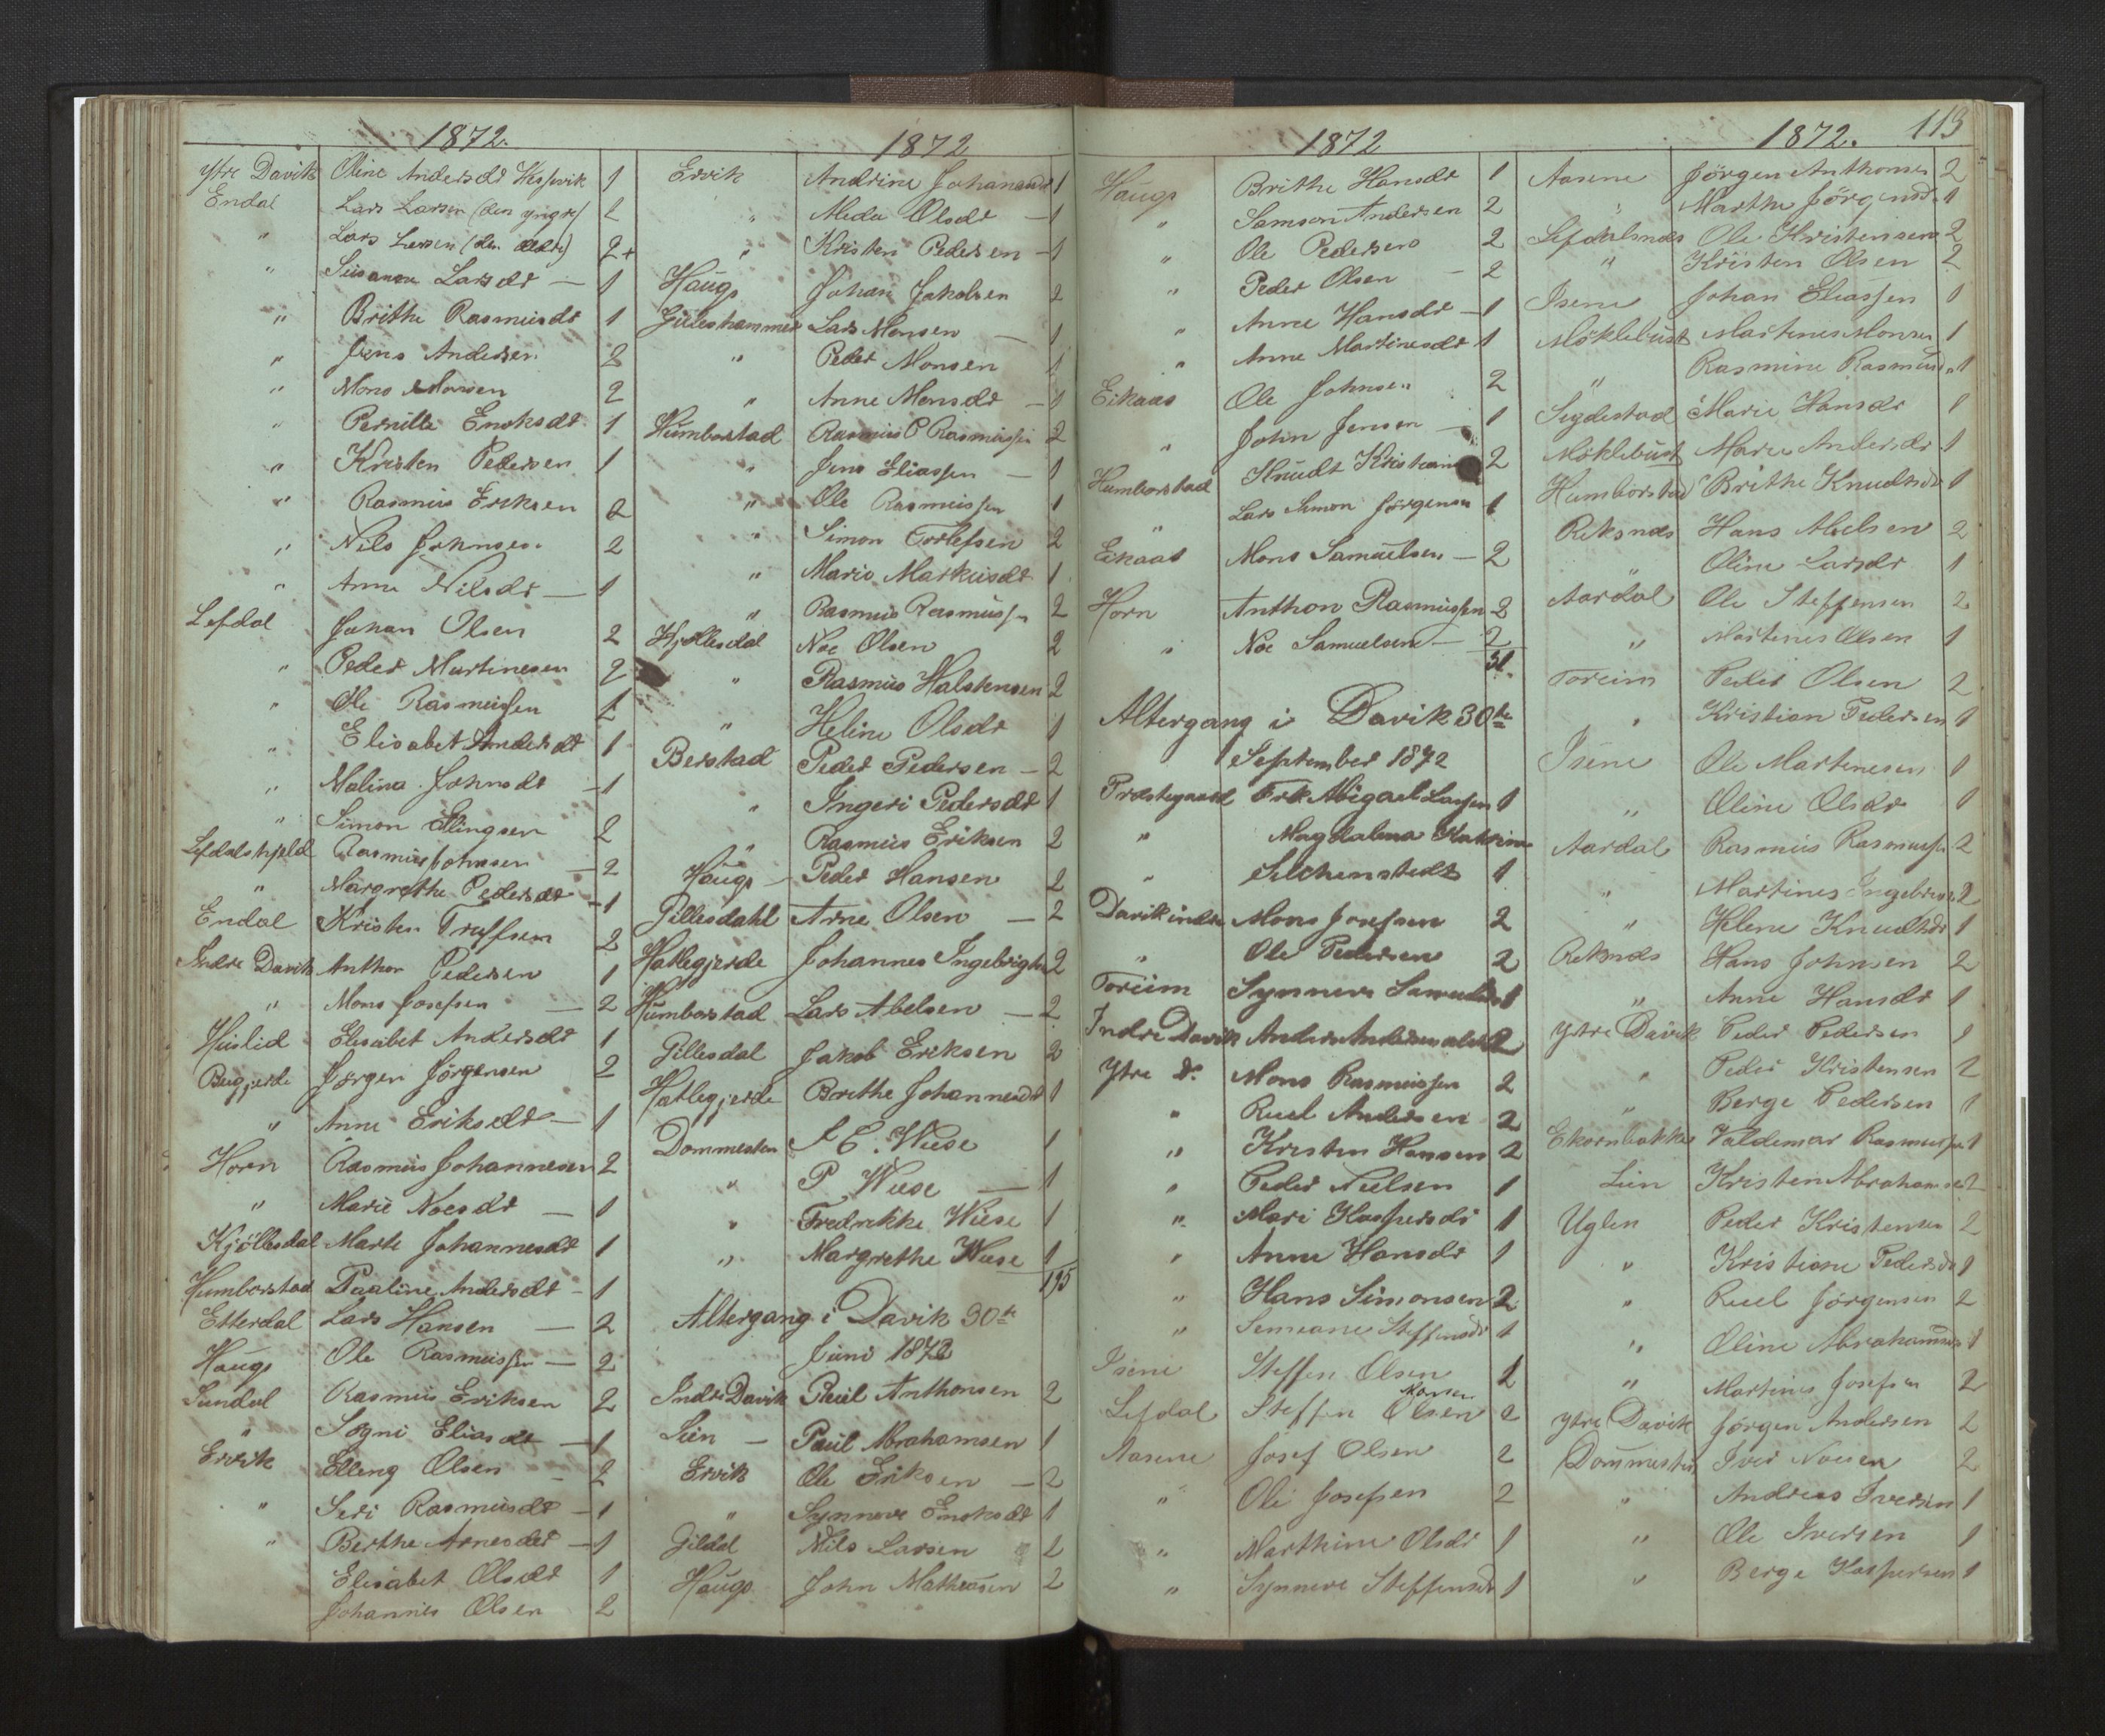 1872.
Ytre Davik Oline Andersdr 1
Endal Lars Larsen (den yngre) 2
" Lars Larsen (den ældre) 2+
" Susanne Larsdr — 1
" Brithe Rasmusdr 1
" Jens Andersen 2
" Mons Monsen 2
" Pernille Enoksdr 1
" Kristen Pedersen 1
" Rasmus Eriksen 2
" Nils Johnsen 2
" Anne Nilsdr — 1
Lefdal Johan Olsen 2
" Peder Martinesen 2
" Ole Rasmussen
" Elisabet Andersdr 1
" Malina Johnsdr — 1
" Simon Ellingsen 2
Lefdalskjeld Rasmus Johnsen — 2
" Margrethe Pedersdr — 1
Endal Kristen 2
Indre Davik Anthon Pedersen 1
" Mons Josefsen — 2
Huslid Elisabet Andersdr 1
Jørgen Jørgensen 2
" Anne Eriksdr — 1
Horn Rasmus Johannesen 2
" Marie Noesdr — 1
Kjöllesdal Marte Johannesdr 1
Humborstad Paaline Andersdr — 1
Etterdal Lars Hansen — 2
Haugs Ole Rasmussen — 2
Rasmus Eriksen 2
" Sogni Eliasdr — 1
Ervik Elling Olsen — 2
" Seri Rasmusdr — 1
" Berthe Arnesdtr — 1
Elisabet Olsdr 1
Johannes Olsen 2
1872
Ervik Andrine Johansdr 1
" Olsdr — 1
" Kristen Pedersen — 1
Haugs Johan Jakobsen 2
Guleshammer Lars Monsen — 1
" Peder Monsen 1
" Anne Monsdr — 1
Humborstad Rasmus P Rasmussen 2
" Jens Eliassen — 1
" Ole Rasmussen 1
" Simon 2
" Marie Markusdr 1
" Rasmus Rasmussen 2
Kjøllesdal Noe Olsen 2
" Rasmus Halstensen 2
" Heline Olsdr 1
Berstad Peder Pedersen — 2
" Ingeri Pedersdr 1
" Rasmus Eriksen 2
Haugs — Peder Hansen 2
Pillesdahl Arne Olsen — 2
Hatlegjerde Johannes 2
Humborstad Lars Abelsen — 2
Pillesdal Jakob Eriksen 2
Hatlegjerde Brithe Johannesdr 1
Dommesten E. Wiese 1
" P Wiese — 1
" Fredrikke Wiese 1
" Margrethe Wiese 1
195
Altergang i Davik 30te
Juni 1872
Indre Davik Paul Anthonsen 2
Lien — Paul Abrahamsen 1
Ervik Ole Eriksen — 2
" Synneve Enoksdr 1
Gildal Nils Larsen 2
Haugs John Matheasen 2
1872
Haugs Brithe Hansdr 1
" Samson Andersen 2
" Ole Pedersen 2
" Peder Olsen — 2
" Anne Hansdr — 1
" Anne Martinesdr 1
Eikaas Ole Johnsen 2
" John Jensen — 1
Humborstad Knudt 2
" Lars Simon Jørgensen 1
Eikaas Mons Samuelsen — 2
Horn Anthon Rasmussen 2
" Noe Samuelsen — 2
31.
Altergang i Davik 30te
September 1872
Præstegaard Frk Abigael Lassen 1
" Magdalena Katrine
" 1
Davik indre Mons Josefsen 2
" Ole Pedersen 2
Toreim Synneve 1
Indre Davik Anders Andersen
Ytre D. Mons Rasmussen 2
" Ruel Andersen 2
" Kristen Hansen 2
" Peder Nielsen 1
" Mari Kaspersdr 1
" Anne Hansdr 1
" Hans Simonsen 2
" Semeane Steffensdr 1
Isene Steffen Olsen
Monsen
Lefdal Steffen Olsen 2
Aasene Josef Olsen 2
" Ole Josefsen 2
" Marthine Olsdr 1
" Synneve Steffensdr 1
1872. 113
Aasene Jörgen Anthonsen 2
" Marthe Jörgensdr 1
Lefdalsnes Ole Kristensen 2
" Kristen Olsen 2
Isene Johan Eliassen 1
Möklebust Martines Monsen 1
" Rasmine Rasmusdr 1
Sigdestad Marie Hansdr 1
Möklebust Marie Andersdr 1
Humborstad Brithe Knudtsdr 1
Reksnes Hans Abelsen 2
" Oline Larsdr 1
Aardal Ole Steffensen 2
" Martines Olsen 1
Toreim Peder Olsen 2
" Kristian Pedersen 1
Isene Ole Martinesen 1
" Oline Olsdr 1
Aardal Rasmus Rasmussen 2
" Martines 2
" Helene Knudtsdr 1
Reksnes Hans Johnsen 2
" Anne Hansdr 1
Ytre Davik Peder Pedersen 1
" Peder Kristensen 2
" Berge Pedersen 1
Ekornbakke Valdemar Rasmussen 1
Lien Kristen Abrahamsen 2
Uglen Peder Kristensen 2
" Kristiane Pedersdr 1
" Ruel Jörgensen 2
" Oline Abrahamsdr 1
" Martines Josefsen 2
Ytre Davik Jørgen Andersen 2
Dommesten Iver Noesen 2
" Andreas Iversen 1
" Ole Iversen 1
" Berge Kaspersen 1